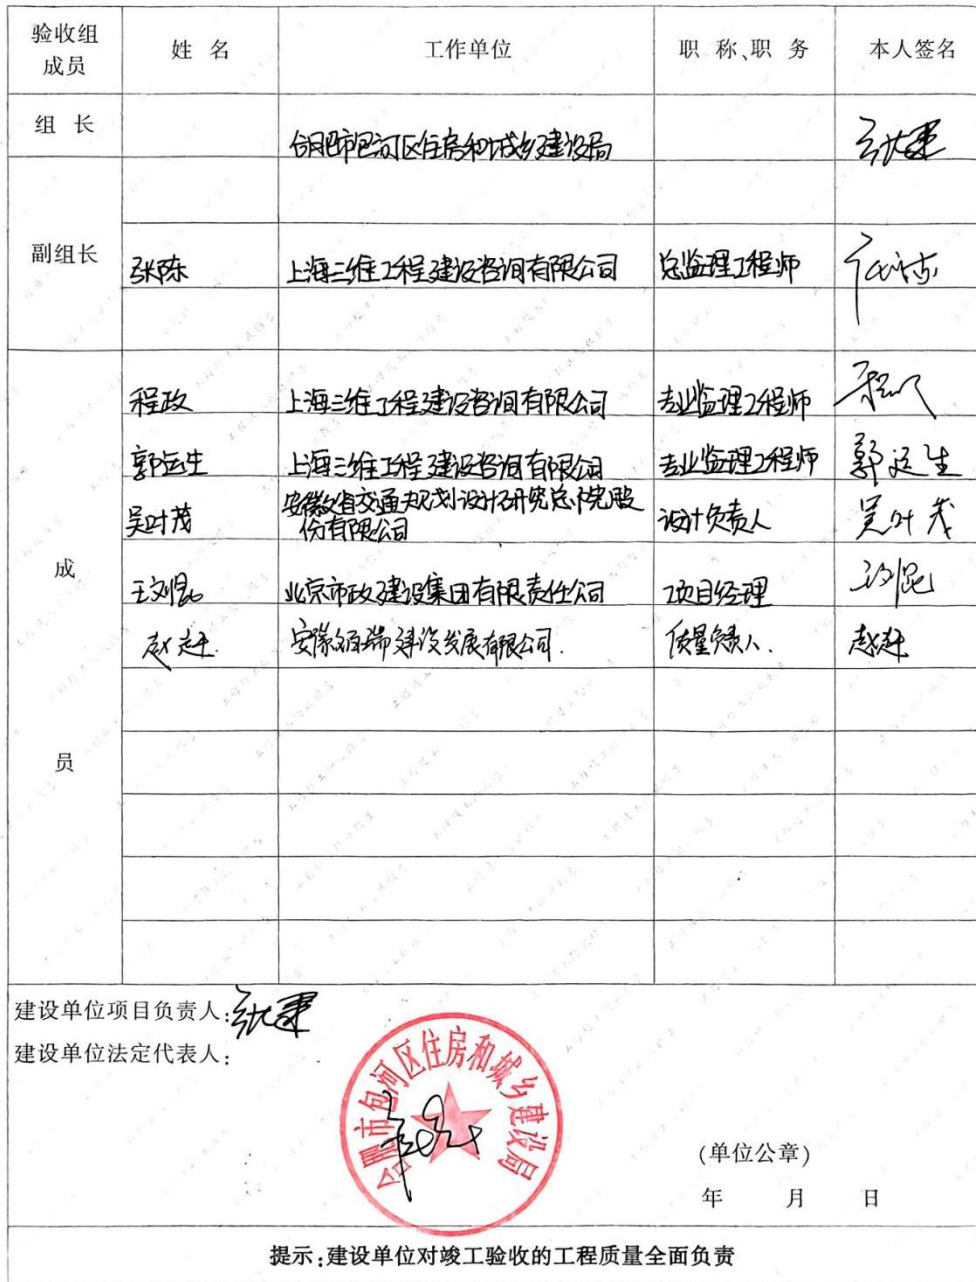 验收组成员 姓名 工作单位 职称、职务 本人签名
组长 合肥市包河区住房和城乡建设局
副组长 张陈 上海三维工程建设咨询有限公司 总监理工程师
程政 上海三维工程建设咨询有限公司 专业监理工程师
郭运生 上海三维工程建设咨询有限公司 专业监理工程师 郭运生
吴叶茂 安徽省交通规划设计研究总院股份有限公司 设计负责人 吴叶茂
成员
王刘昆 北京市政建设集团有限责任公司 项目经理
赵赶 建设发展有限公司. 质量负责人. 赵赶
建设单位项目负责人:
建设单位法定代表人:
合肥市包河区住房和城乡建设局
(单位公章)
年 月 日
提示:建设单位对竣工验收的工程质量全面负责